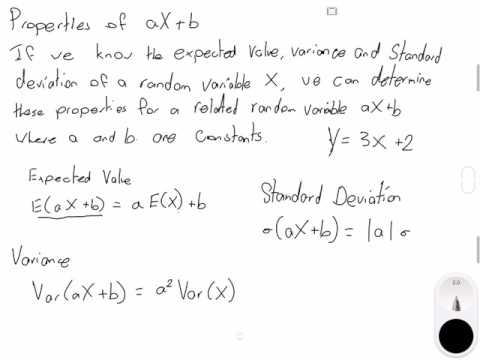 Properties of aX+b
If we know the expected value, variance and Standard
deviation of a random variable X, we can determine
these properties for a related random variable aX+b
where a and b are constants.
Y = 3x +2
Expected Value
E(aX+b) = a E(X)+b
Standard Deviation
σ(aX+b) = |a| σ
Variance
Var(aX+b) = a² Var(x)